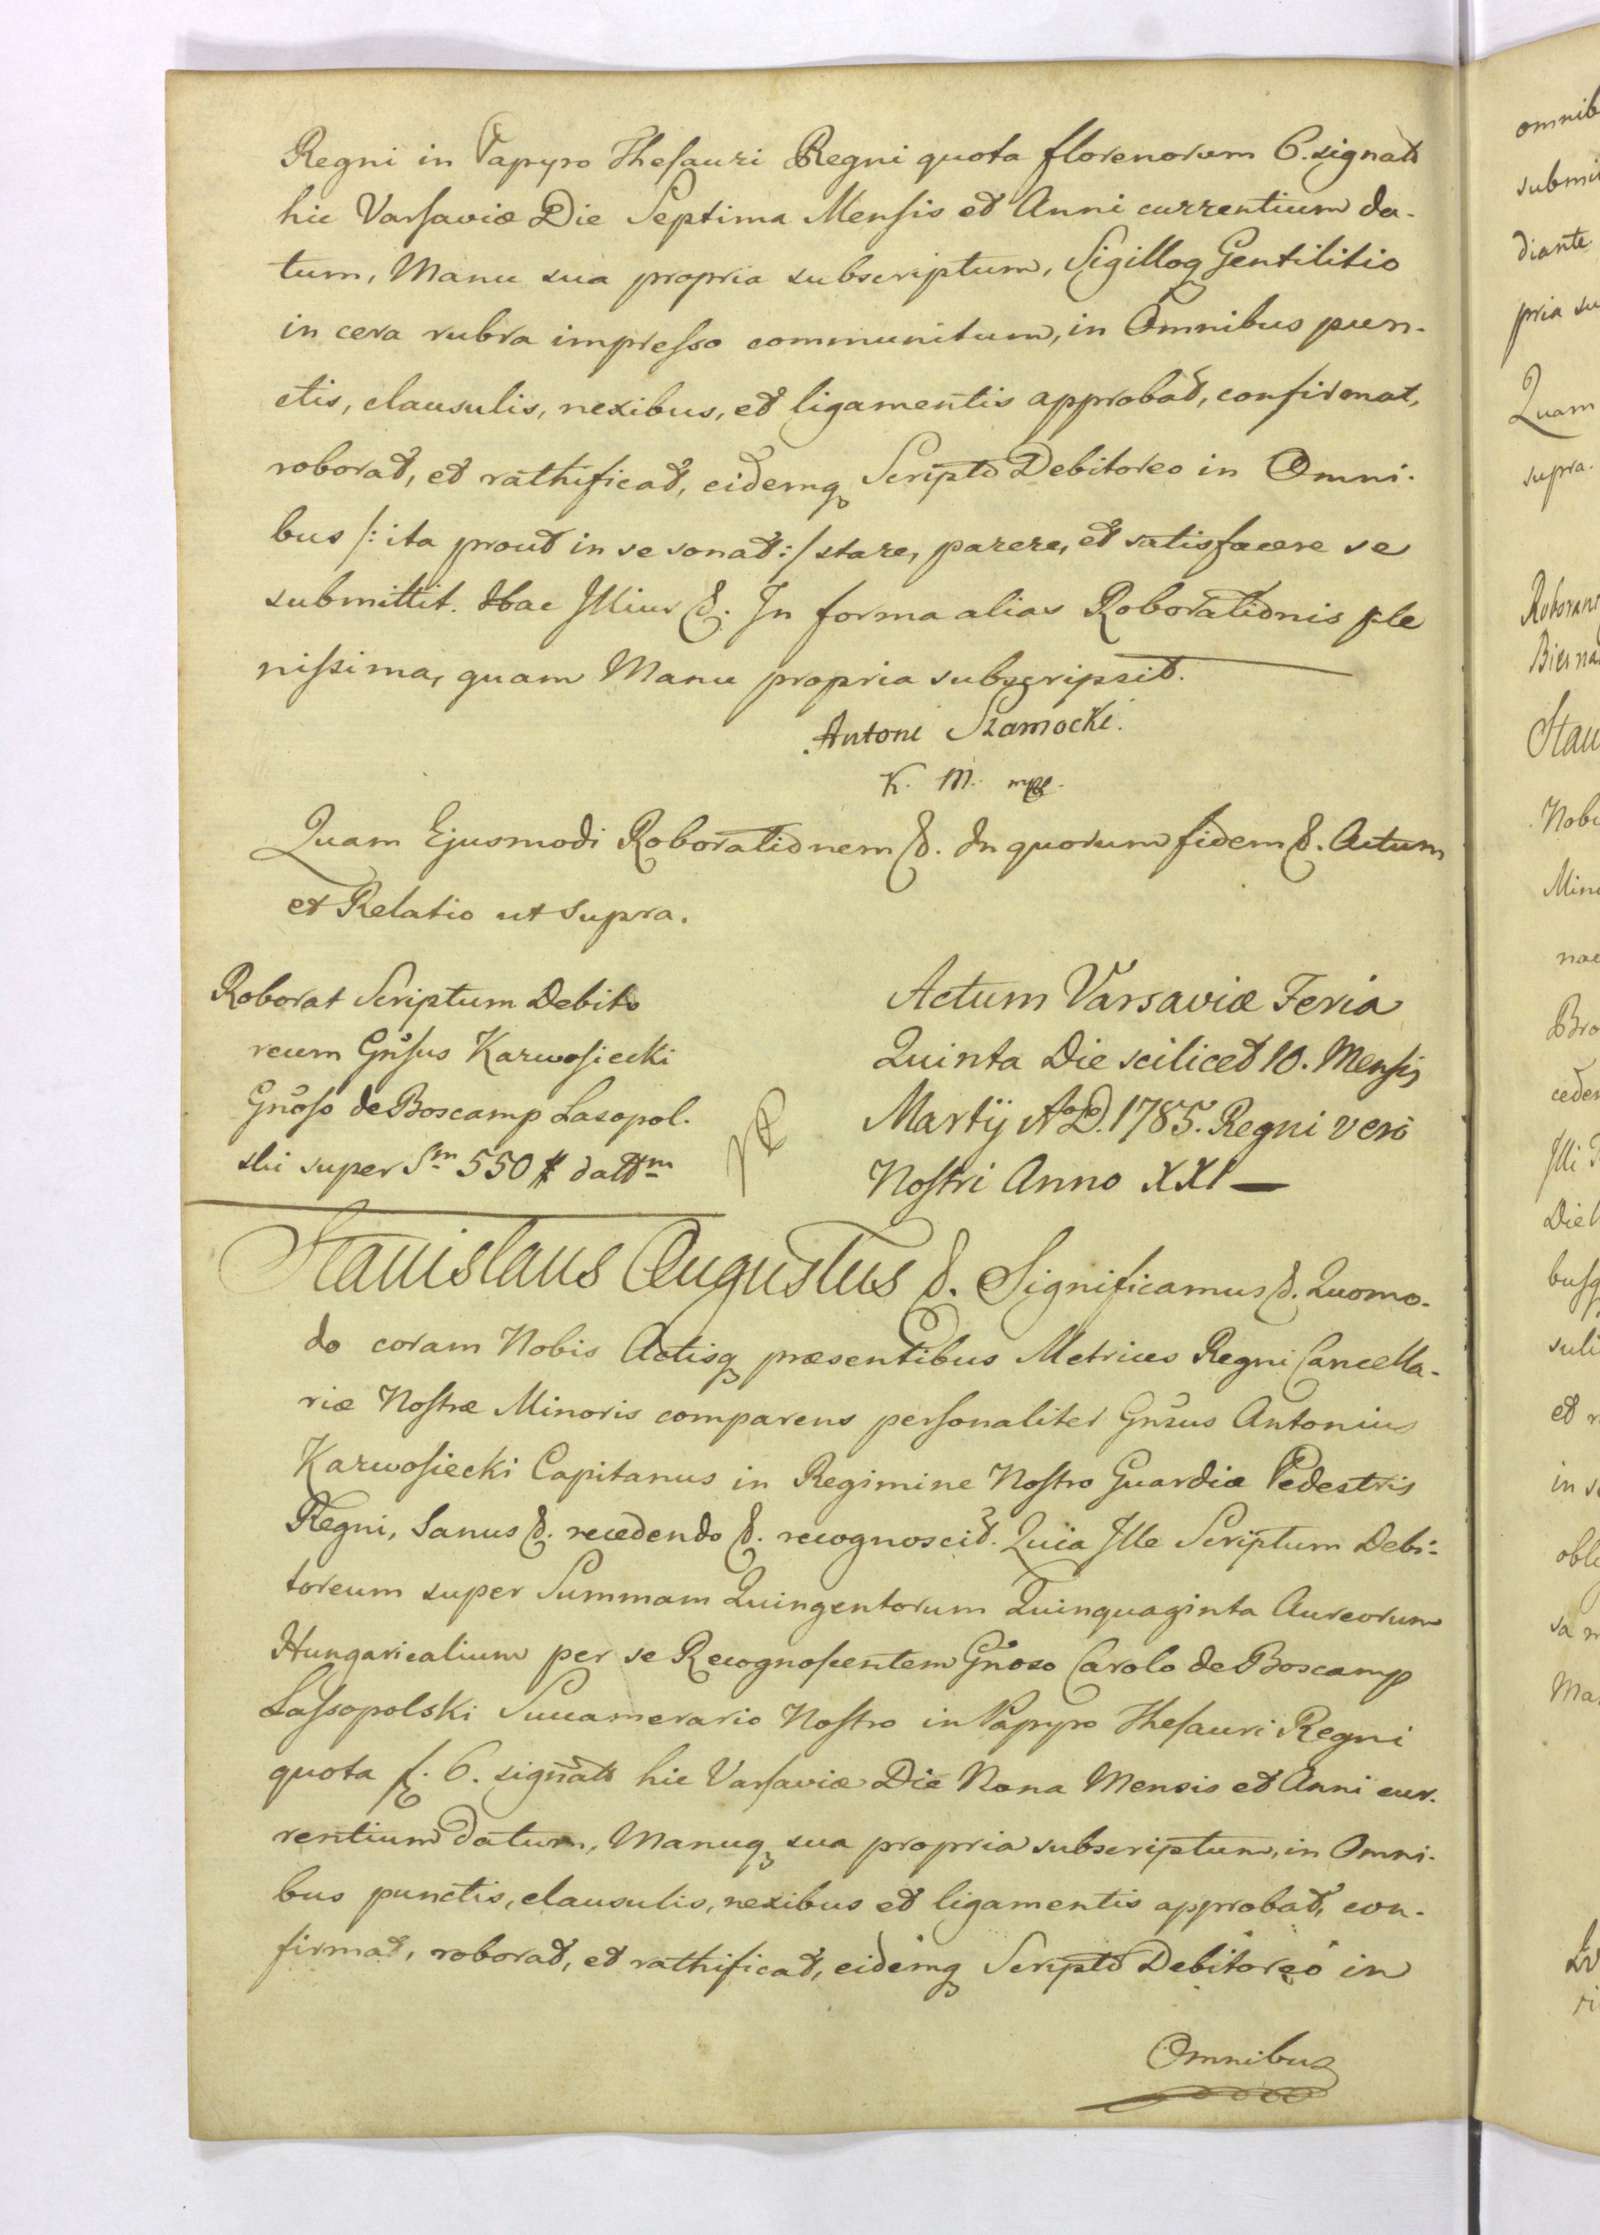 Regni in Papyro Thesauri Regni quota florenorum 6. signatt
hic Varsaviæ Die Septima Mensis et Anni currentium da-
tum, Manu sua propria subscriptum, Sigilloq Gentilitio
in cera rubra impresso communitum, in Omnibus pun-
ctis, clausulis, nexibus, et ligamentis approbat, confirmat,
roborat, et rathificat, eidemq Scripto Debitoreo in Omni-
bus /: ita prout in se sonat :/ stare, parere, et satisfacere se
submittit. Hac Illius &. In forma alias Roborationis ple
nissima, quam Manu propria subscripsit.
Antoni Szamocki.
K. M. mpp.
Quam Ejusmodi Roborationem &. In quorum fidem &. Actum
et Relatio ut supra.
Roborat Scriptum Debito
reum Gnsus Karwosiecki
Gnoso de Boscamp Lasopol-
ski super Sm 550 # dattm
Actum Varsaviæ Feria
Quinta Die scilicet 10. Mensis
Martij AoD. 1785. Regni vero
Nostri Anno XXI —
Stanislaus Augustus &. Significamus &. Quomo-
do coram Nobis Actisq præsentibus Metrices Regni Cancella-
riæ Nostræ Minoris comparens personaliter Gnsus Antonius
Karwosiecki Capitanus in Regimine Nostro Guardiæ Pedestris
Regni, Sanus &. recedendo &. recognoscit. Quia Ille Scriptum Debi-
toreum super Summam Quingentorum Quinquaginta Aureorum
Hungaricalium per se Recognoscentem Gnoso Carolo de Boscamp
Lassopolski Succamerario Nostro in Papyro Thesauri Regni
quota f. 6. signatt hic Varsaviæ Die Nona Mensis et Anni cur-
rentium datum, Manuq sua propria subscriptum, in Omni-
bus punctis, clausulis, nexibus et ligamentis approbat, con-
firmat, roborat, et rathificat, eidemq Scripto Debitoreo in
Omnibus